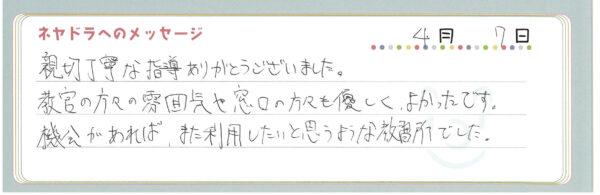 ネヤドラへのメッセージ
4月 7日
親切丁寧な指導ありがとうございました。
教官の方々の雰囲気や窓口の方々も優しく、よかったです。
機会があれば、また利用したいと思うような教習所でした。